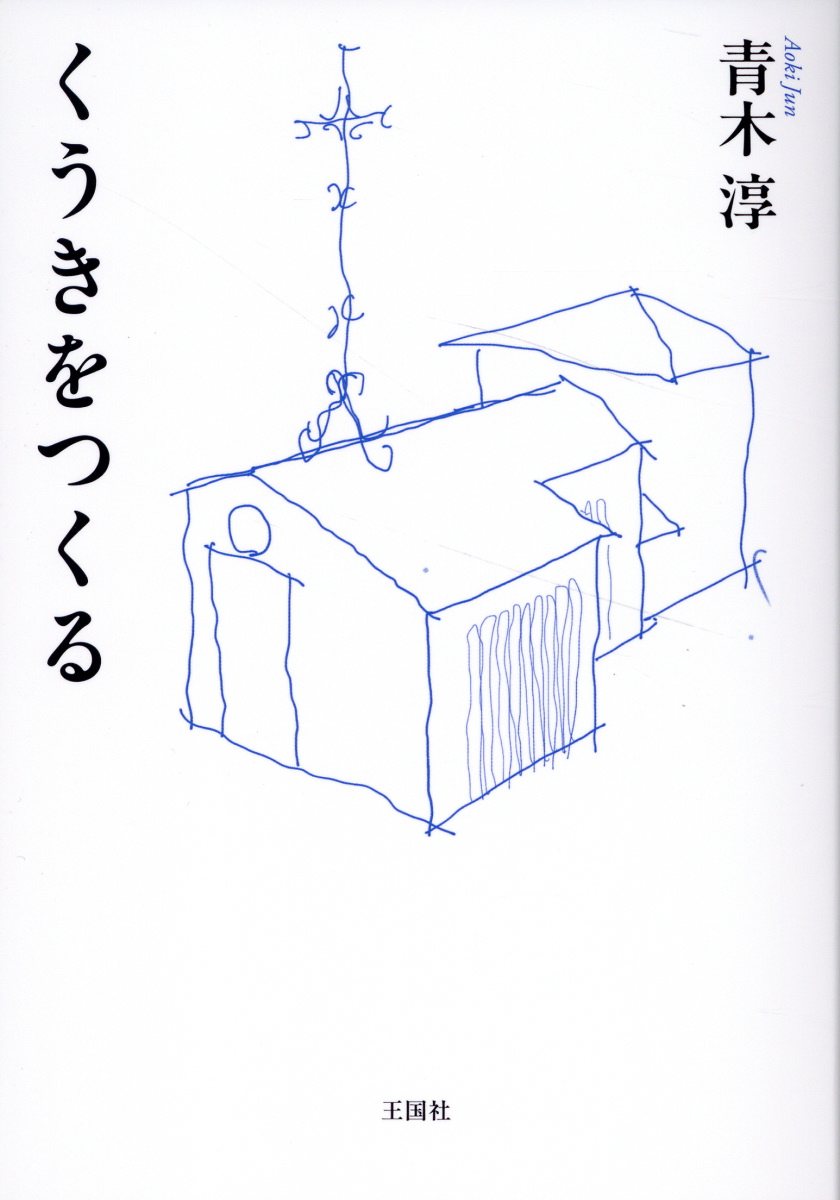 青木 淳
Aoki Jun
くうきをつくる
王国社